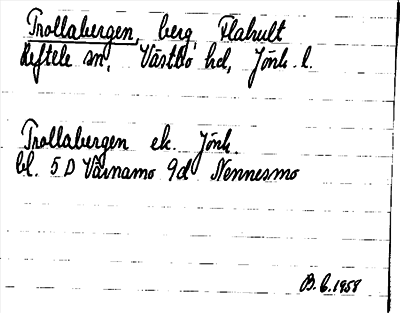 Trollabergen, berg, Flahult
Reftele sn, Västbo hd, Jönk. l.
Trollabergen ek. Jönk.
bl. 5 D Värnamo 9d Nennesmo
B.E. 1958